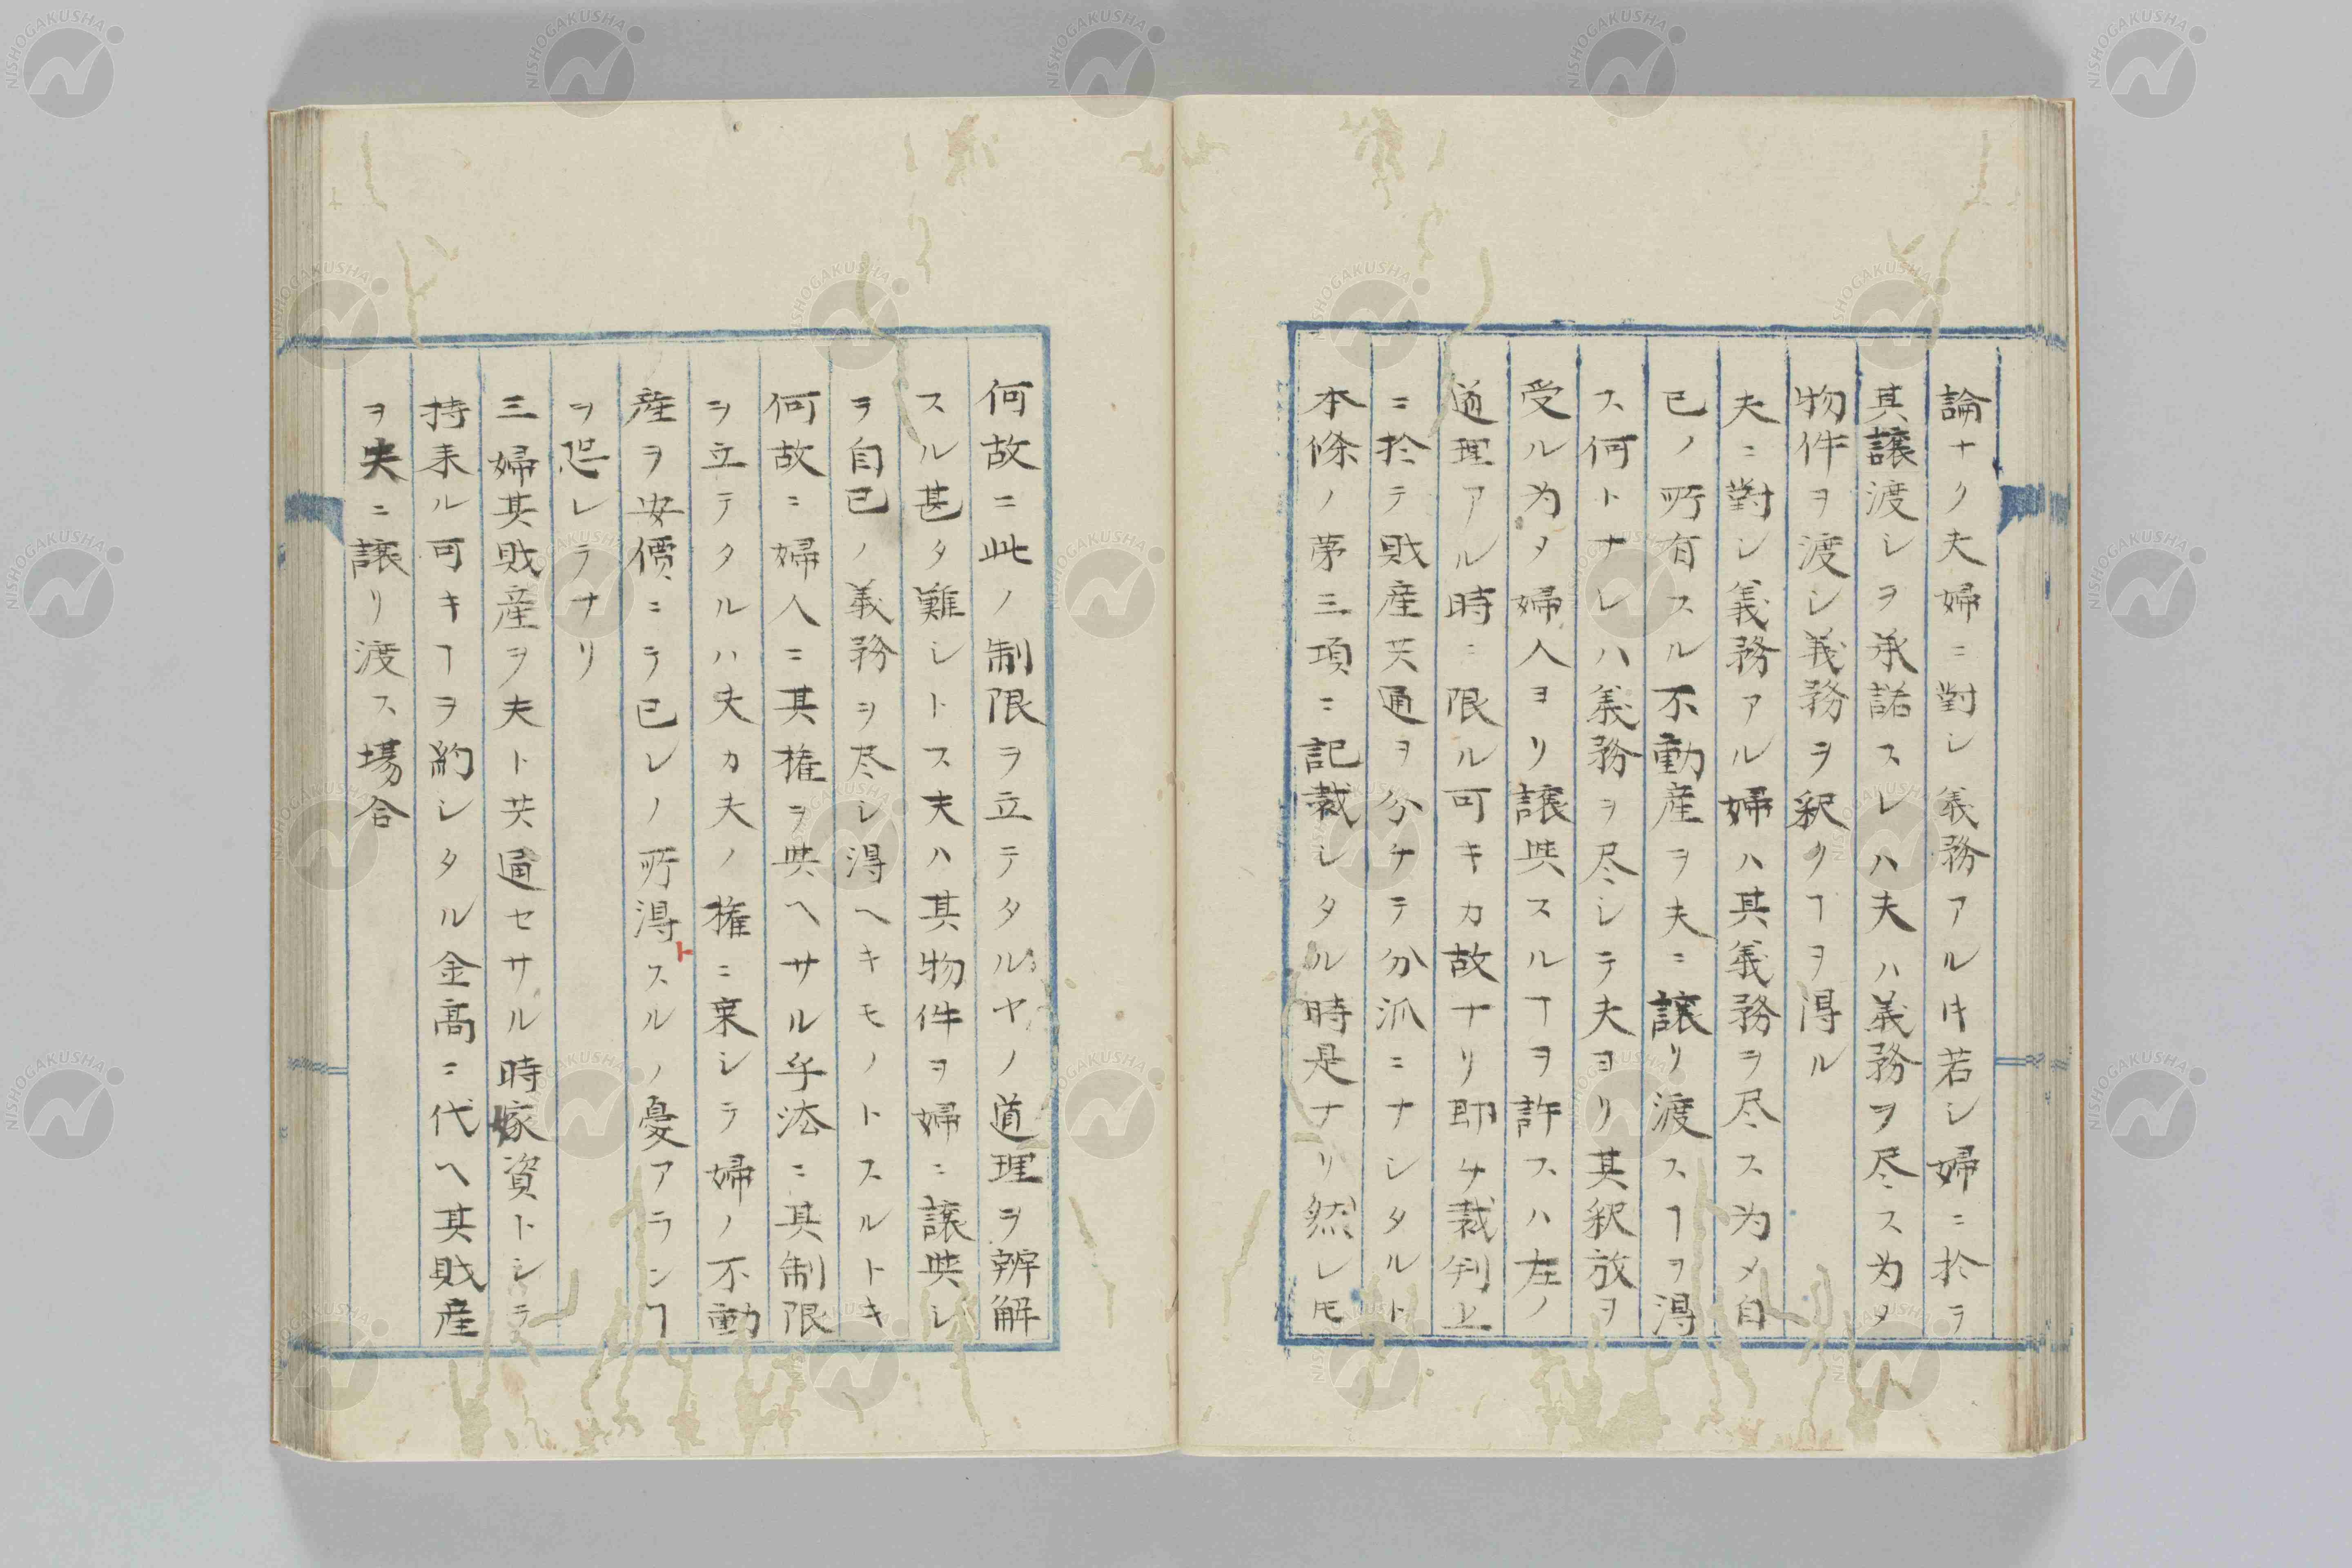 論ナク夫婦ニ對シ義務アル𪜈若シ婦ニ於テ
其譲渡シヲ承諾スレハ夫ハ義務ヲ尽ス為タ
物件ヲ渡シ義務ヲ釈クヿヲ得ル
夫ニ對シ義務アル婦ハ其義務ヲ尽ス为メ自
已ノ所有スル不動産ヲ夫ニ譲リ渡スヿヲ得
ス何トナレハ義務ヲ尽シテ夫ヨリ其釈放ヲ
受ル为メ婦人ヨリ譲與スルヿヲ許スハ左ノ
道理アル時ニ限ル可キカ故ナリ即ケ裁判上
ニ於テ財産共通ヲ分ケテ分派ニナシタルト
本條ノ第三項ニ記裁シタル時是ナリ然レ𪜈
何故ニ此ノ制限ヲ立テタルヤノ道理ヲ辨解
スル甚タ難シトス夫ハ其物件ヲ婦ニ譲與シ
ヲ自已ノ義務ヲ尽シ得ヘキモノトスルトキ
何故ニ婦人ニ其権ヲ與ヘサル乎法ニ其制限
ヲ立テタルハ夫カ夫ノ権ニ乗シテ婦ノ不動
産ヲ安價ニテ已レノ所得トスルノ憂アランヿ
ヲ恐レテナリ
三婦其財産ヲ夫ト共通セサル時嫁資トシテ
持来ル可キヿヲ約シタル金高ニ代ヘ其財産
ヲ夫ニ譲リ渡ス場合
NISHOGAKUSHA